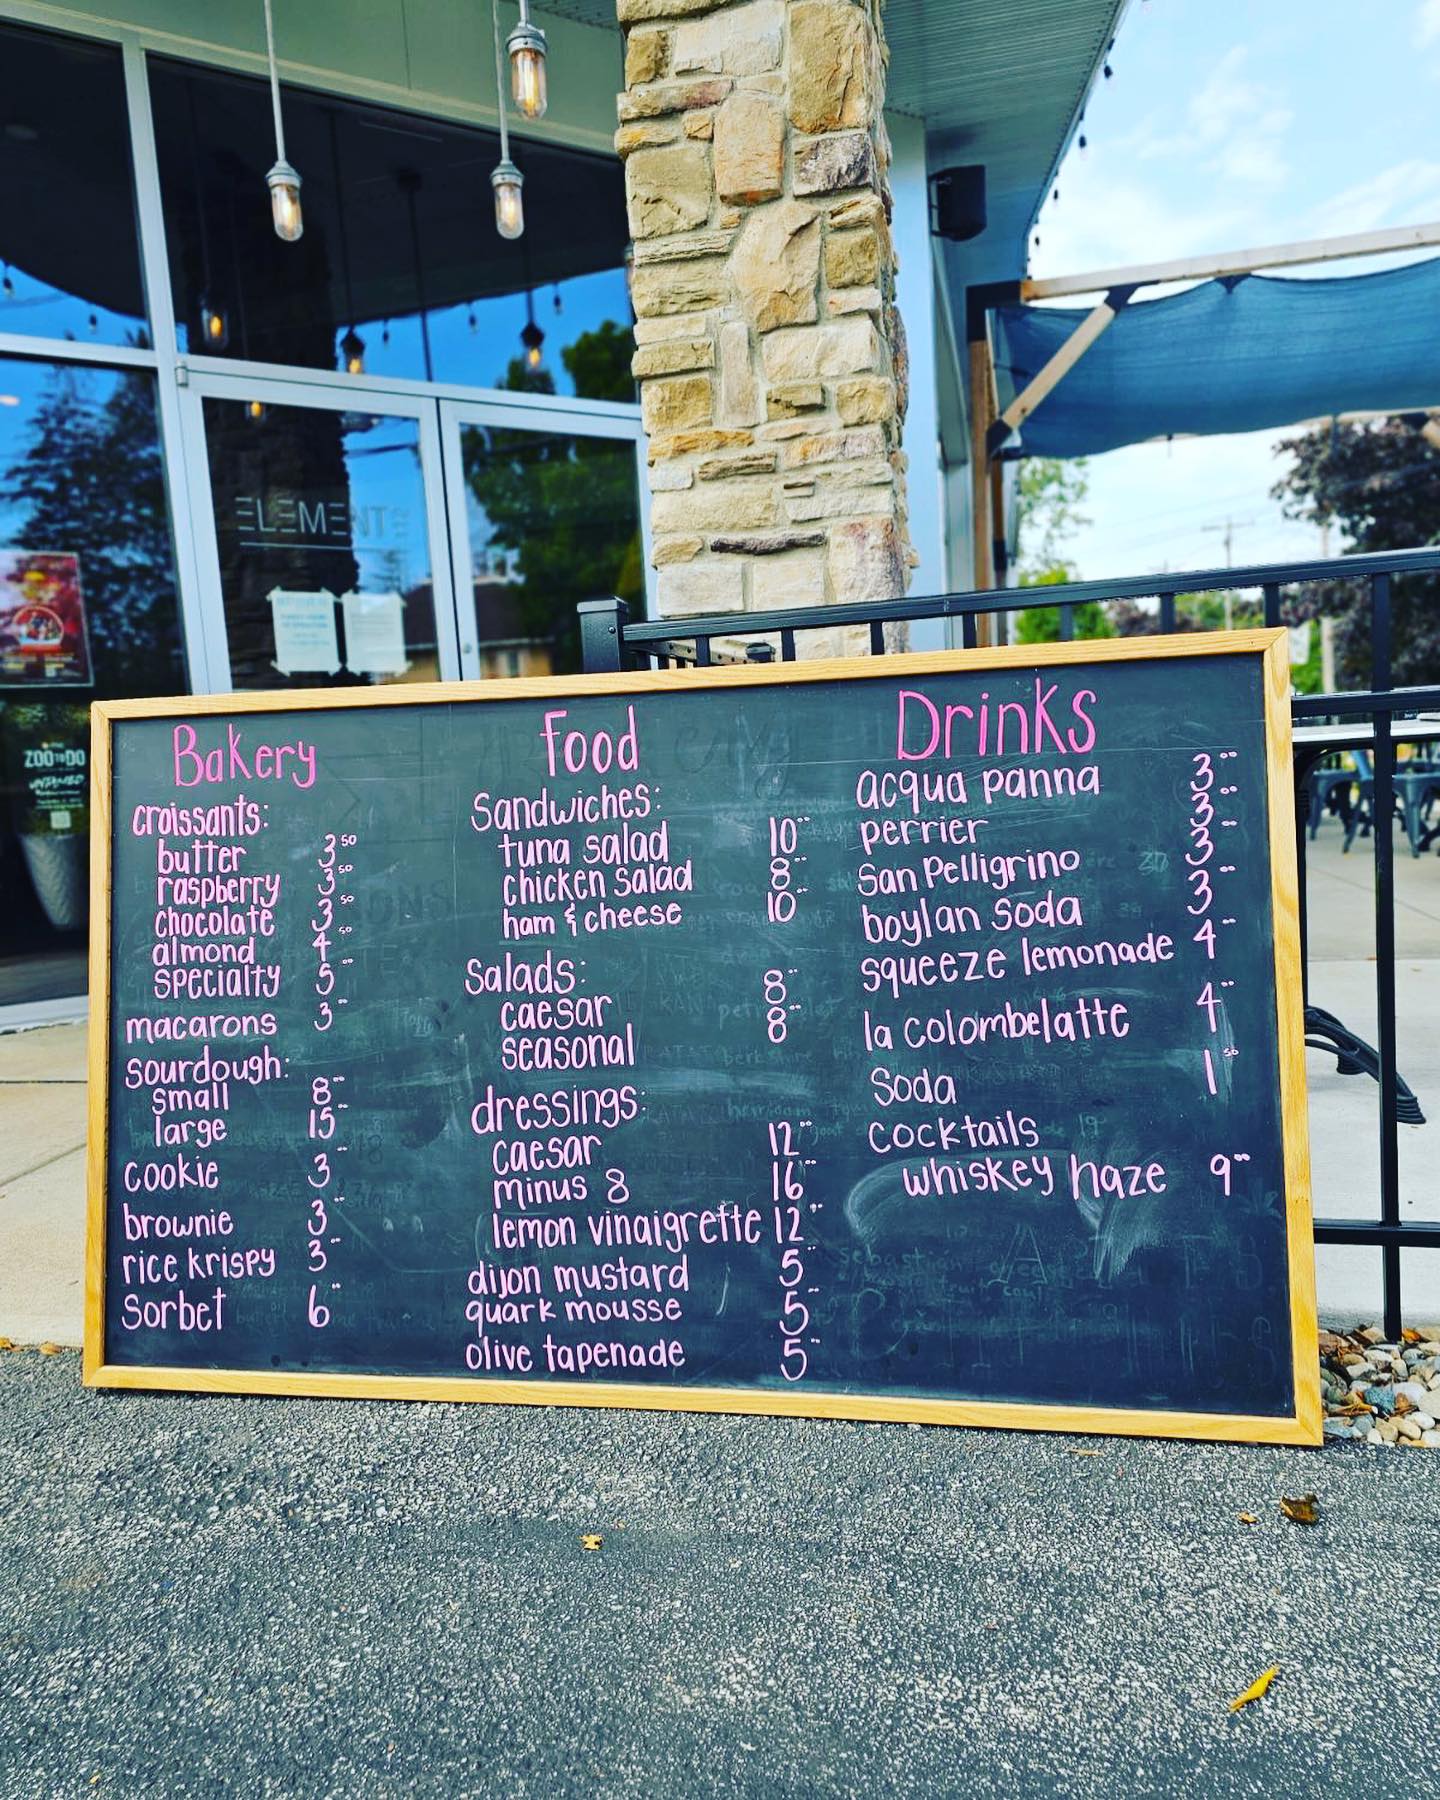 ELEMENT
ZOO TO DO
Bakery
croissants:
butter 3.50
raspberry 3.50
chocolate 3.50
almond 4.50
specialty 5.00
macarons 3.00
sourdough:
small 8.00
large 15.00
cookie 3.00
brownie 3.00
rice krispy 3.00
sorbet 6.00
Food
Sandwiches:
tuna salad 10.00
chicken salad 8.00
ham & cheese 10.00
Salads:
caesar 8.00
seasonal 8.00
dressings:
caesar 12.00
minus 8 16.00
lemon vinaigrette 12.00
dijon mustard 5.00
quark mousse 5.00
olive tapenade 5.00
Drinks
acqua panna 3.00
perrier 3.00
San Pelligrino 3.00
boylan soda 3.00
squeeze lemonade 4.00
la colombe latte 4.00
Soda 1.50
cocktails
whiskey haze 9.00